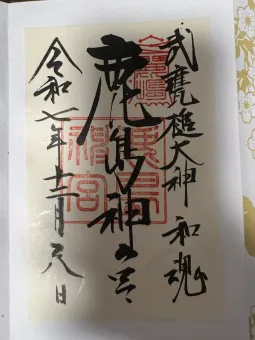 武甕槌大神 和魂
鹿島神宮
令和七年十二月六日
鹿島
神宮